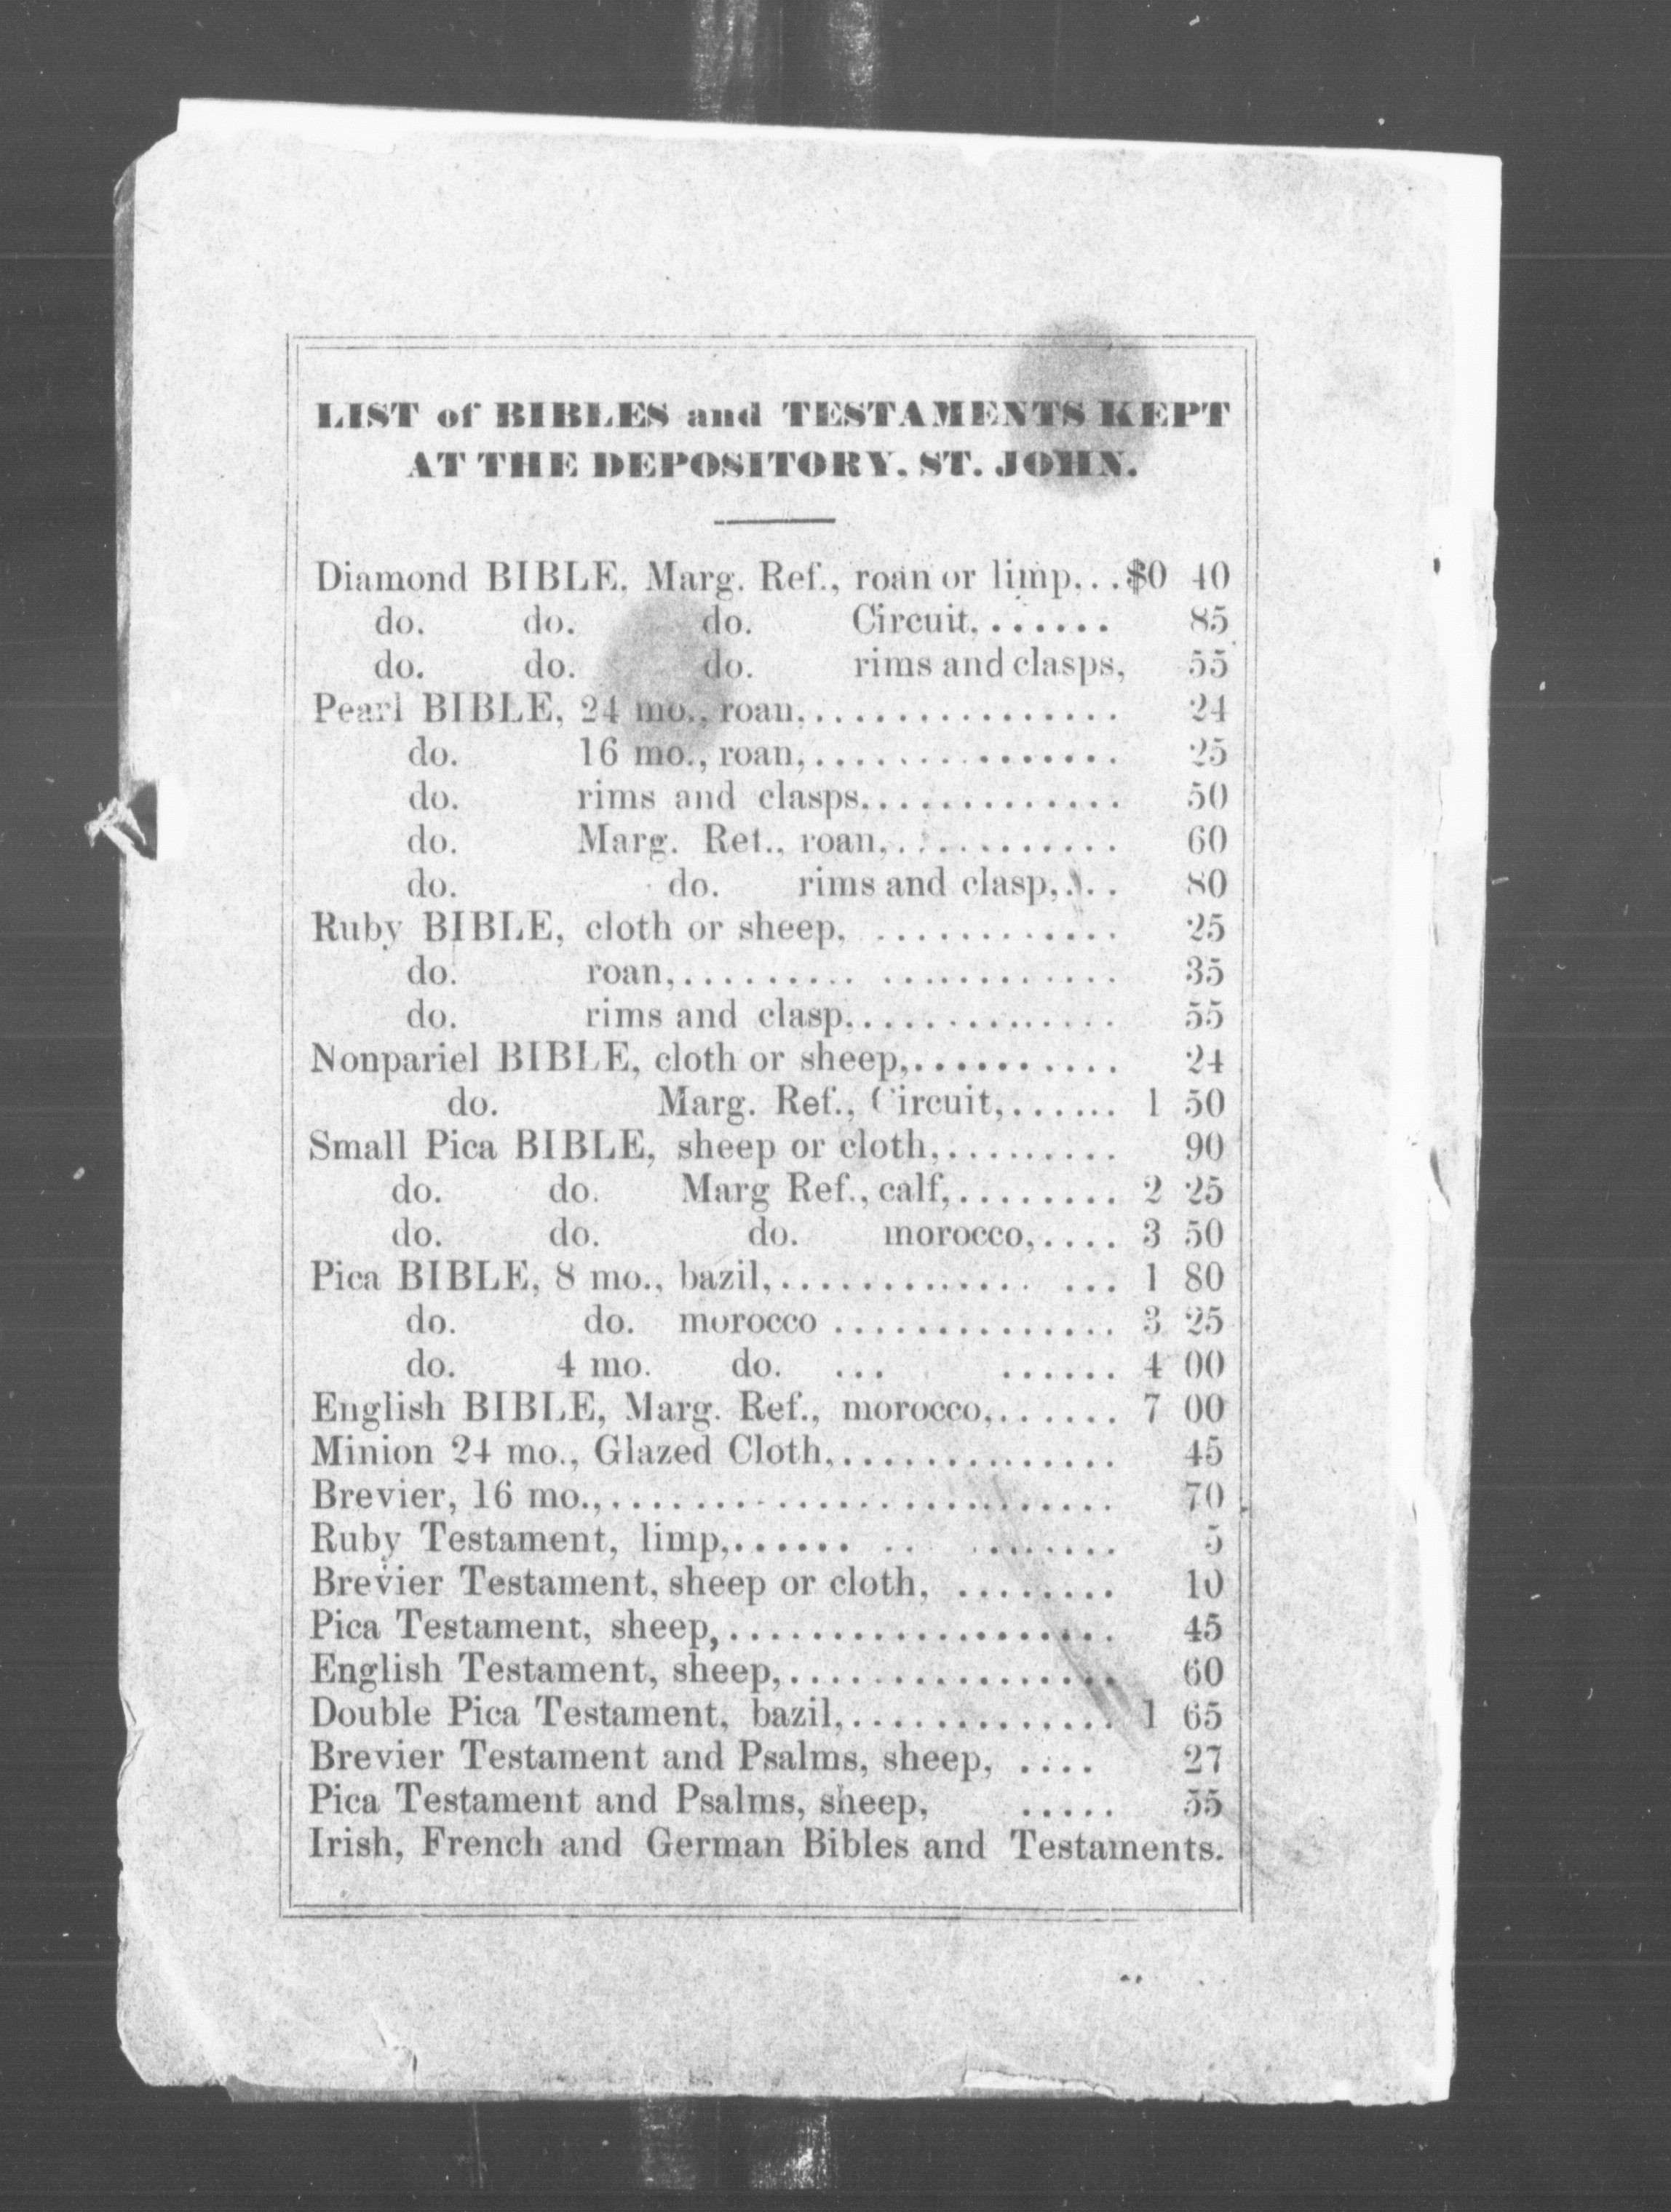 LIST of BIBLES and TESTAMENTS KEPT
AT THE DEPOSITORY, ST. JOHN.
Diamond BIBLE, Marg. Ref., roan or limp,..$0 40
do. do. do. Circuit,...... 85
do. do. do. rims and clasps, 55
Pearl BIBLE, 24 mo., roan,............... 24
do. 16 mo., roan,............... 25
do. rims and clasps,............ 50
do. Marg. Ref., roan,........... 60
do. do. rims and clasp,... 80
Ruby BIBLE, cloth or sheep, ............ 25
do. roan,......... ............ 35
do. rims and clasp,............. 55
Nonpariel BIBLE, cloth or sheep,.......... 24
do. Marg. Ref., Circuit,...... 1 50
Small Pica BIBLE, sheep or cloth,......... 90
do. do. Marg Ref., calf,........ 2 25
do. do. do. morocco,.... 3 50
Pica BIBLE, 8 mo., bazil,............. ... 1 80
do. do. morocco .............. 3 25
do. 4 mo. do. ... ...... 4 00
English BIBLE, Marg. Ref., morocco,...... 7 00
Minion 24 mo., Glazed Cloth,.............. 45
Brevier, 16 mo.,......................... 70
Ruby Testament, limp,...... .. ....... 5
Brevier Testament, sheep or cloth, ........ 10
Pica Testament, sheep,................... 45
English Testament, sheep,................ 60
Double Pica Testament, bazil,............. 1 65
Brevier Testament and Psalms, sheep, .... 27
Pica Testament and Psalms, sheep, ..... 55
Irish, French and German Bibles and Testaments.